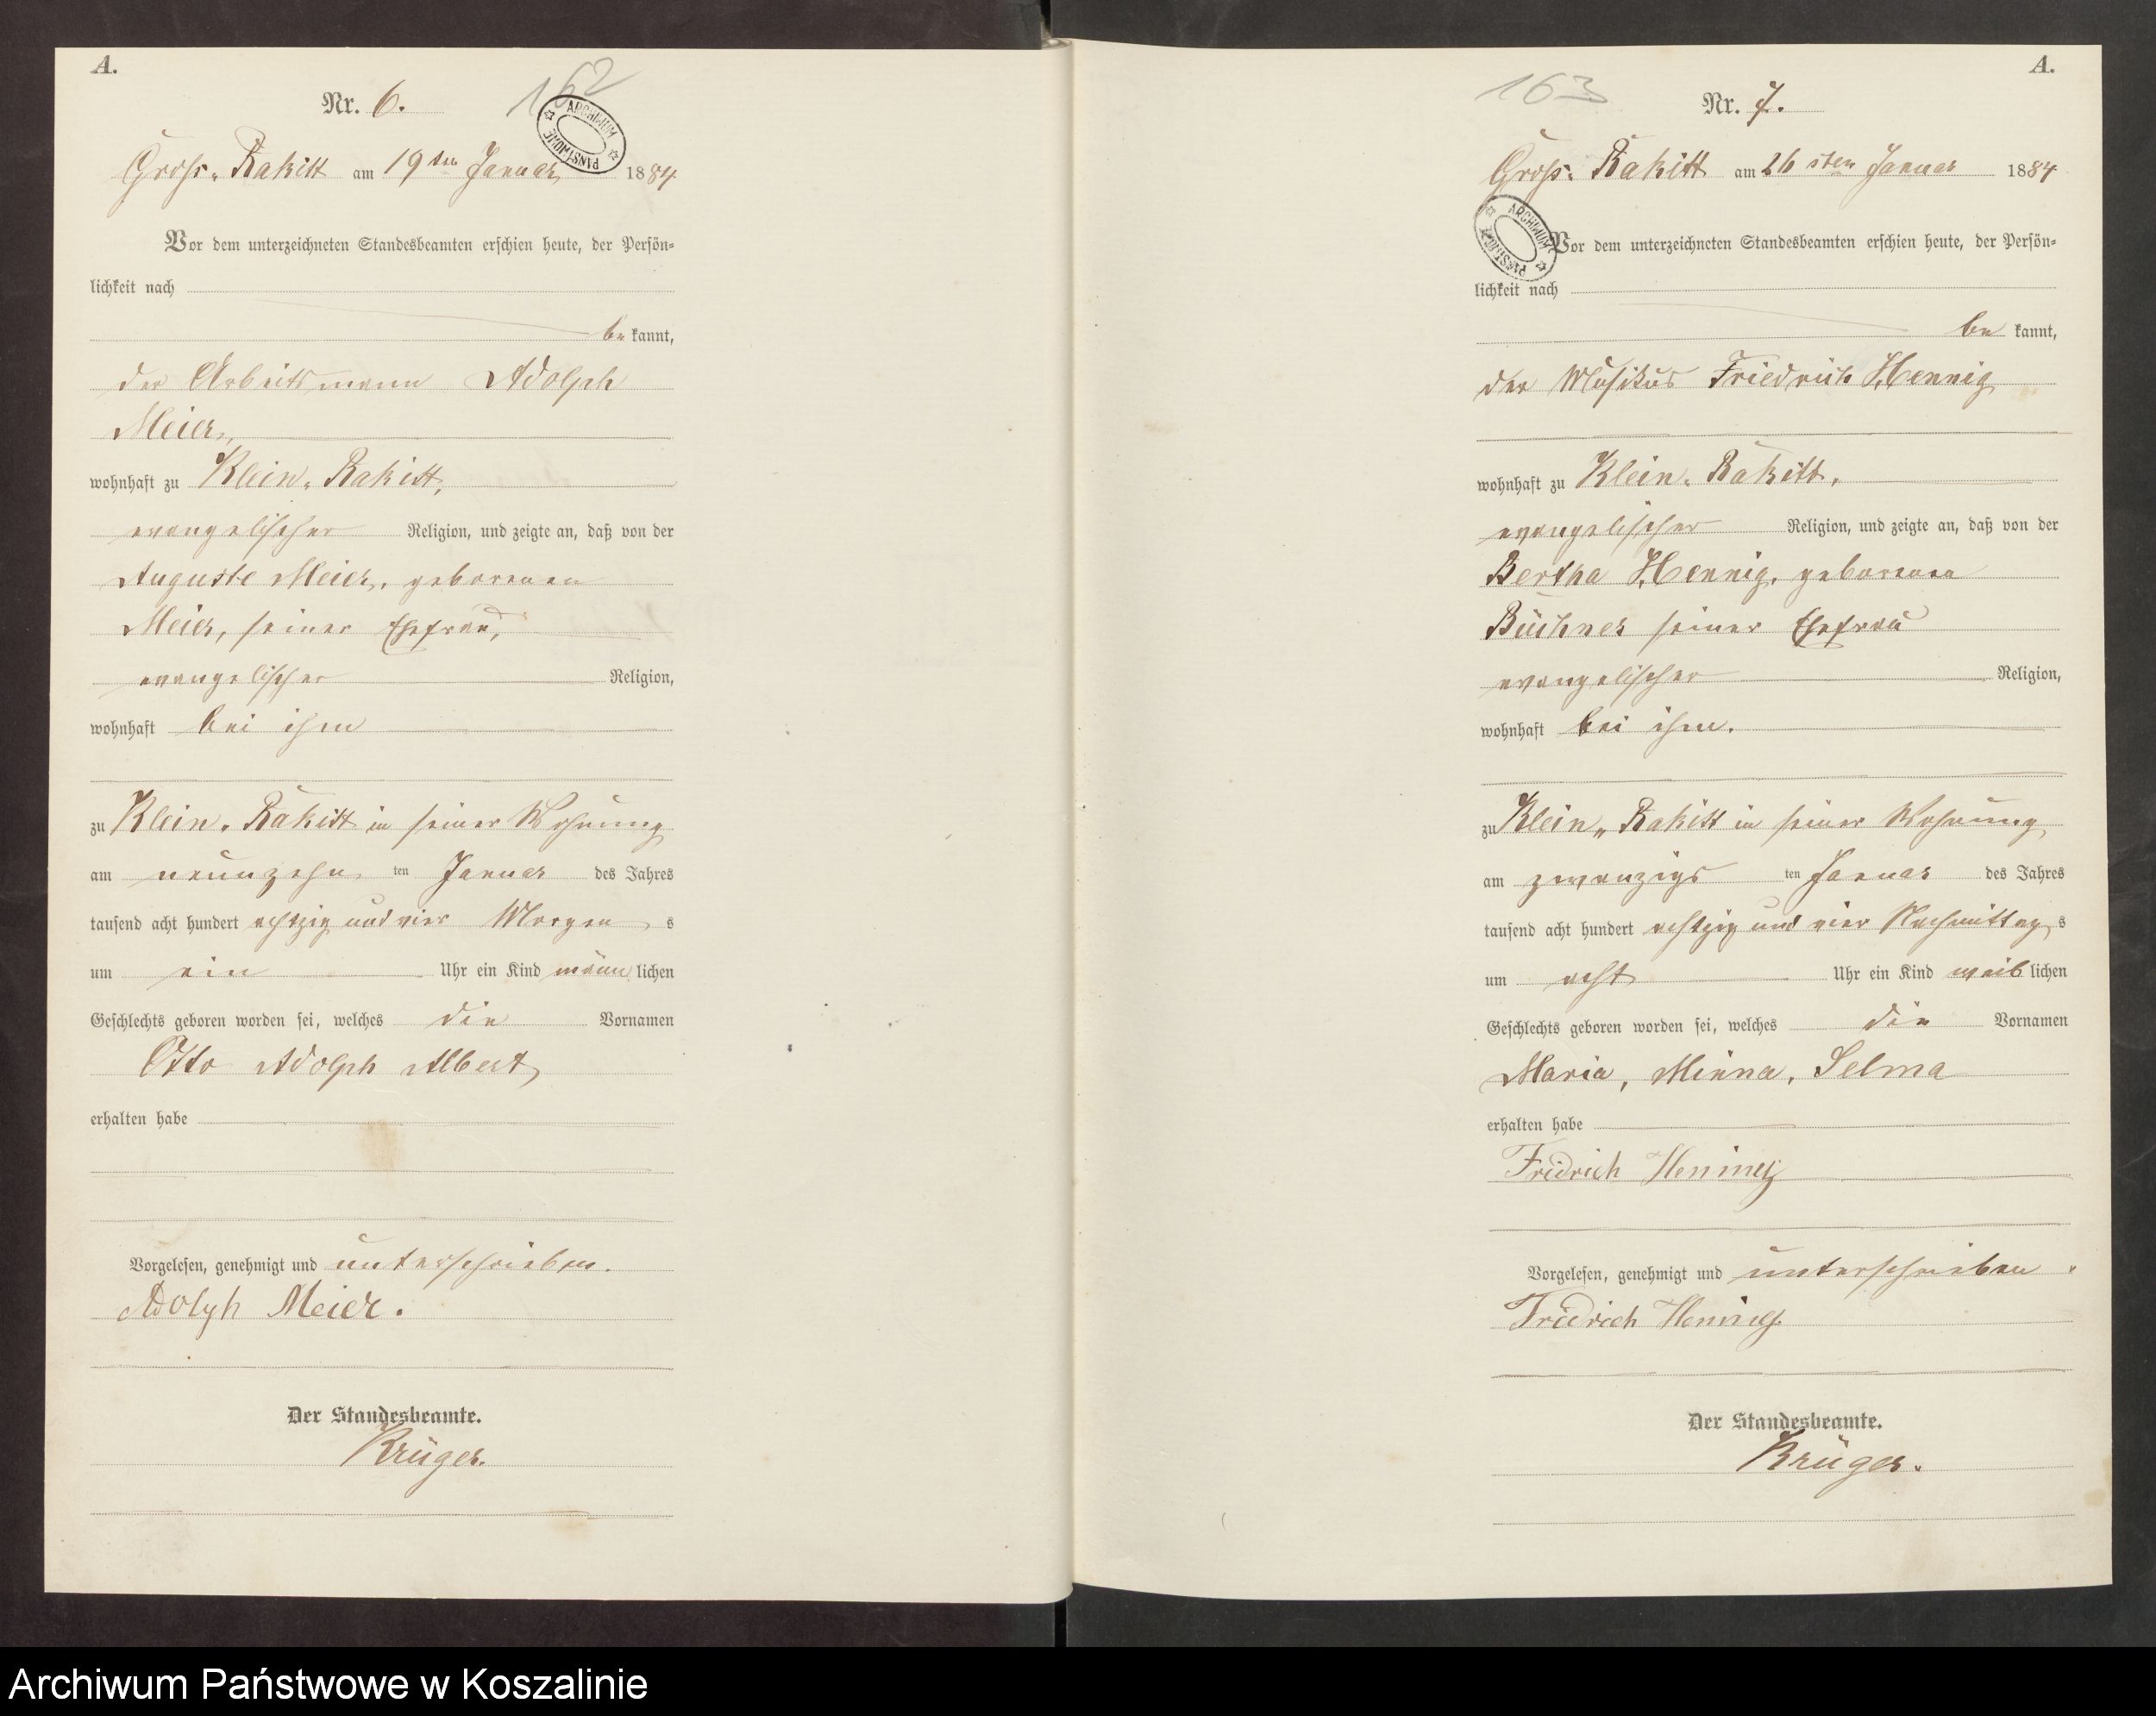 A.
162
Nr. 6.
ARCHIWUM PAŃSTWOWE
Gross-Rakitt am 19ten Januar 1884
Vor dem unterzeichneten Standesbeamten erschien heute, der Persön-
lichkeit nach
bekannt,
der Arbeitsmann Adolph
Meier,
wohnhaft zu Klein-Rakitt,
evangelischer Religion, und zeigte an, daß von der
Auguste Meier, geborenen
Meier, seiner Ehefrau,
evangelischer Religion,
wohnhaft bei ihm
zu Klein-Rakitt in seiner Wohnung
am neunzehn ten Januar des Jahres
tausend acht hundert achtzig und vier Morgen s
um ein Uhr ein Kind männlichen
Geschlechts geboren worden sei, welches die Vornamen
Otto Adolph Albert
erhalten habe
Vorgelesen, genehmigt und unterschrieben.
Adolph Meier.
Der Standesbeamte.
Krüger.
A.
163
Nr. 7.
Gross-Rakitt am 26sten Januar 1884
ARCHIWUM PAŃSTWOWE
Vor dem unterzeichneten Standesbeamten erschien heute, der Persön-
lichkeit nach
be kannt,
der Musikus Friedrich Hennig
wohnhaft zu Klein-Rakitt,
evangelischer Religion, und zeigte an, daß von der
Bertha Hennig, geborenen
Büchner seiner Ehefrau
evangelischer Religion,
wohnhaft bei ihm.
zu Klein-Rakitt in seiner Wohnung
am zwanzigs ten Januar des Jahres
tausend acht hundert achtzig und vier Nachmittag s
um acht Uhr ein Kind weiblichen
Geschlechts geboren worden sei, welches die Vornamen
Maria, Minna, Selma
erhalten habe
Fridrich Hennig
Vorgelesen, genehmigt und unterschrieben.
Fridrich Hennig.
Der Standesbeamte.
Krüger.
Archiwum Państwowe w Koszalinie